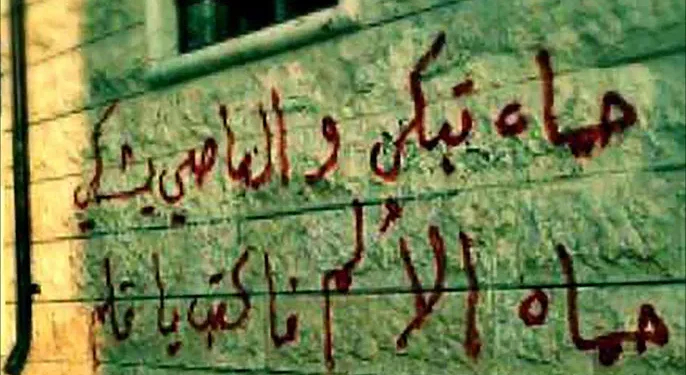 حماه تبكي و العاصي يشكي
حماه الألم فاكتب يا قلم